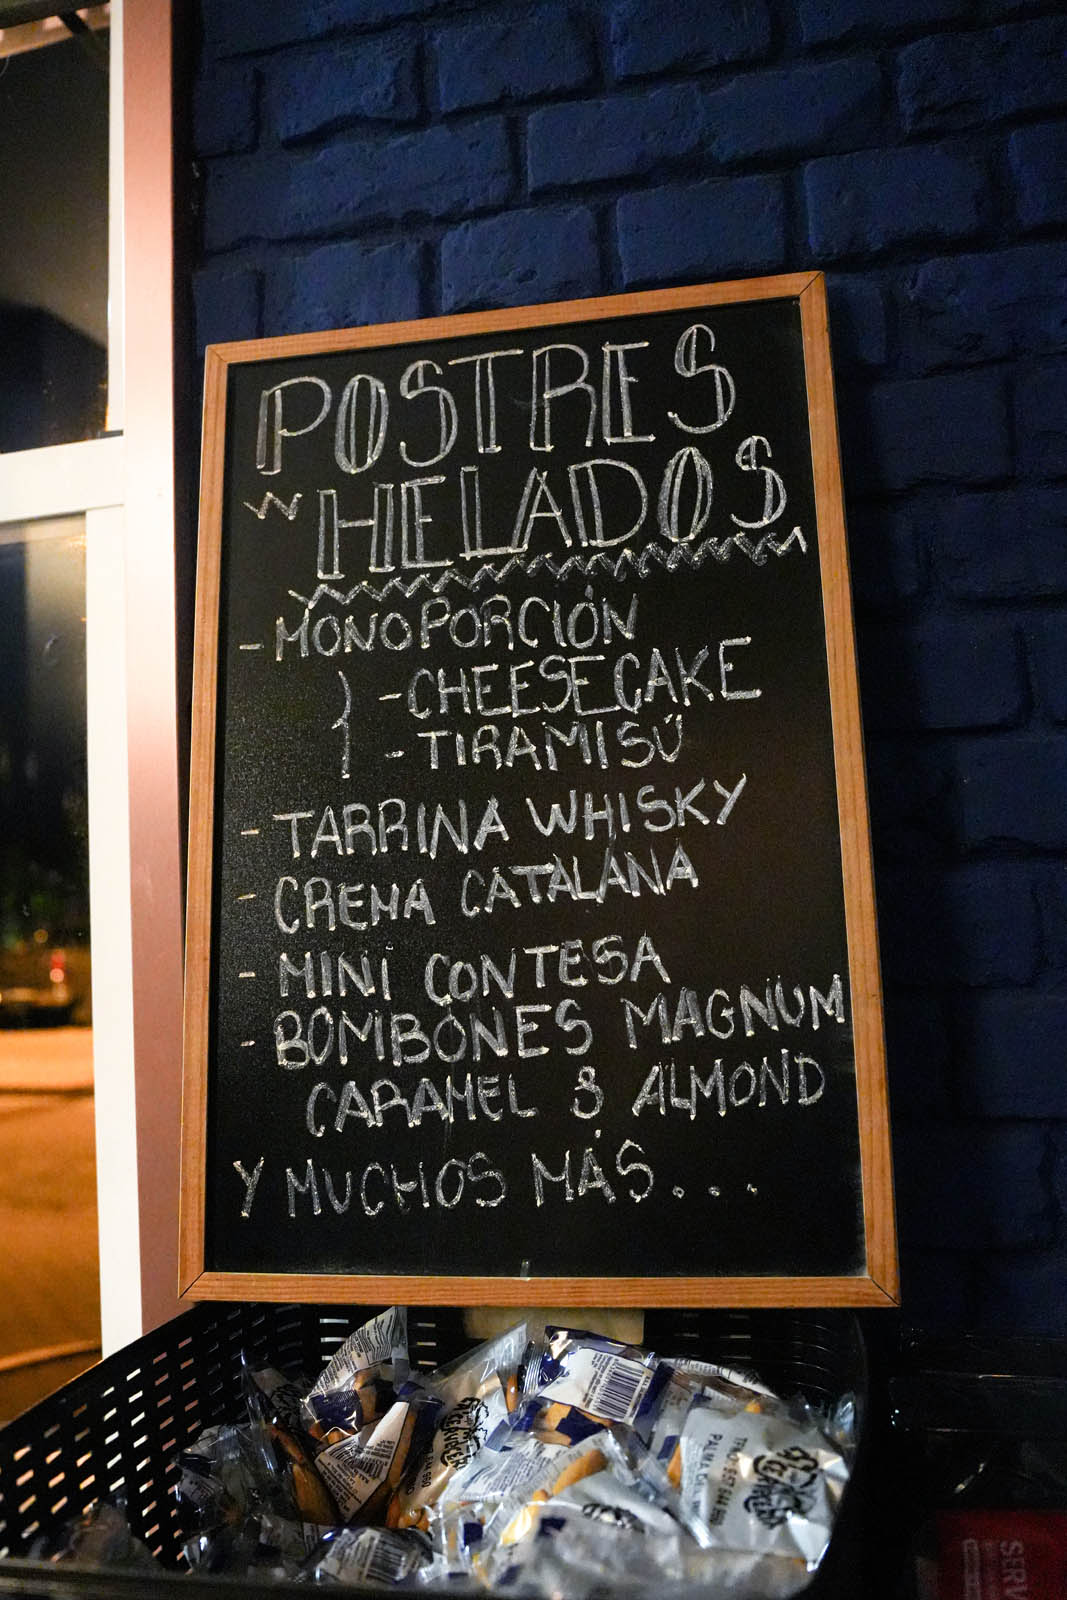 POSTRES
HELADOS
- MONOPORCIÓN
- CHEESECAKE
- TIRAMISÚ
- TARRINA WHISKY
- CREMA CATALANA
- MINI CONTESA
- BOMBONES MAGNUM
CARAMEL & ALMOND
Y MUCHOS MÁS...
PALMA
SERV